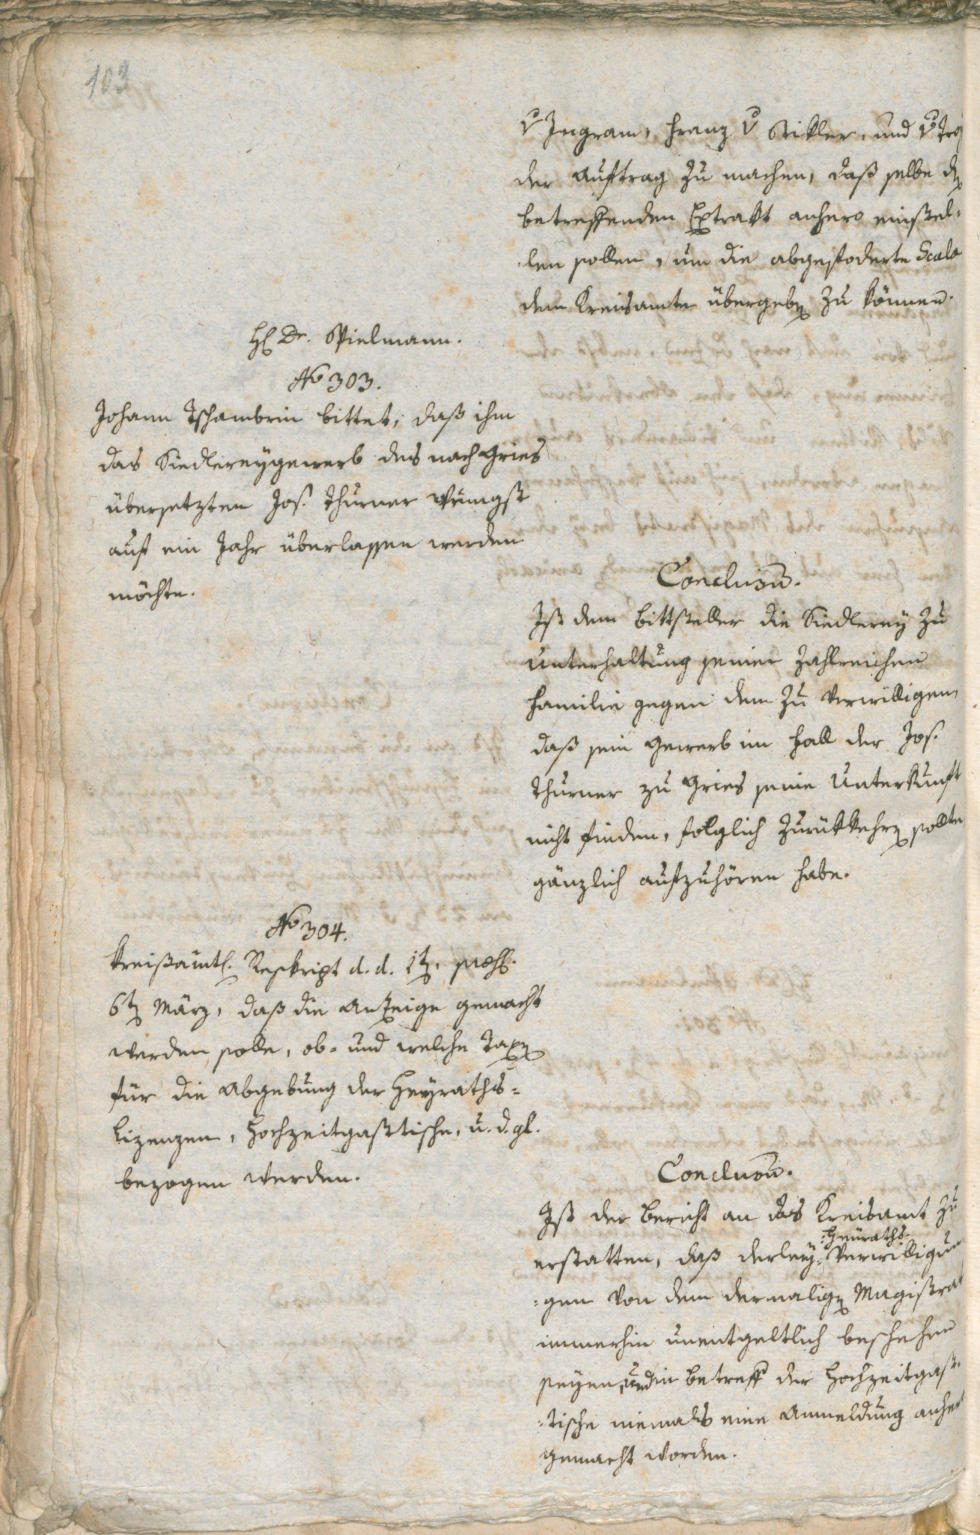 103
v Ingram, Franz v Stikler, und v Tro
der Auftrag zu machen, daß selbe den
betreffenden Extrakt anhero einstel-
len sollen, um die abgefoderte Scala
dem Kreisamte übergeben zu können.
H. Dr. Spielmann.
No 303.
Johann Tschambrin bittet, daß ihm
das Siedlereygewerb des nach Gries
übersetzten Jos. Thurner wenigst
auf ein Jahr überlassen werden
möchte.
Conclusum.
Ist dem Bittsteller die Siedlerey zu
Unterhaltung seiner zahlreichen
Familie gegen dem zu verwilligen
daß sein Gewerb im Fall der Jos.
Thurner zu Gries seine Unterkunft
nicht finden, folglich zurükkehren sollte
gänzlich aufzuhören habe.
No 304.
Kreisämtl. Reskript d. d. 1ten,
6ten März, daß die Anzeige gemacht
werden solle, ob- und welche Taxen
für die Abgebung der Heyraths-
Lizenzen, Hochzeitgasttische, u. d. gl.
bezogen werden.
Conclusum.
Ist der Bericht an das Kreisamt zu
erstatten, daß derley Heuraths Verwilligun
gen von dem dermaligen Magistrat
immerhin unentgeltlich beschehen
seyen, und in Betreff der Hochzeitgast-
tische niemals eine Anmeldung anher
gemacht worden.